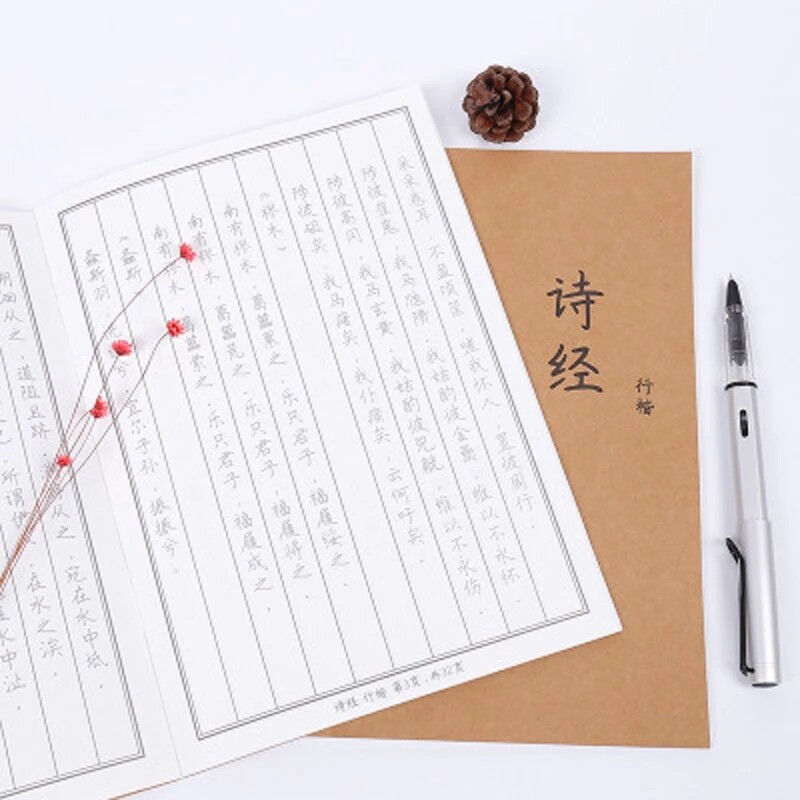 采采卷耳，不盈顷筐。嗟我怀人，寘彼周行。
陟彼崔嵬，我马虺隤。我姑酌彼金罍，维以不永怀。
陟彼高冈，我马玄黄。我姑酌彼兕觥，维以不永伤。
陟彼砠矣，我马瘏矣，我仆痡矣，云何吁矣。
《樛木》
南有樛木，葛藟累之。乐只君子，福履绥之。
南有樛木，葛藟荒之。乐只君子，福履将之。
南有樛木，葛藟萦之。乐只君子，福履成之。
《螽斯
螽斯羽，兮。宜尔子孙，振振兮。
诗经 行楷 第3页，共32页
洄从之，道阻且跻。从之，宛在水中坻。
所谓伊人，在水之涘。
水中沚。
诗经
行楷